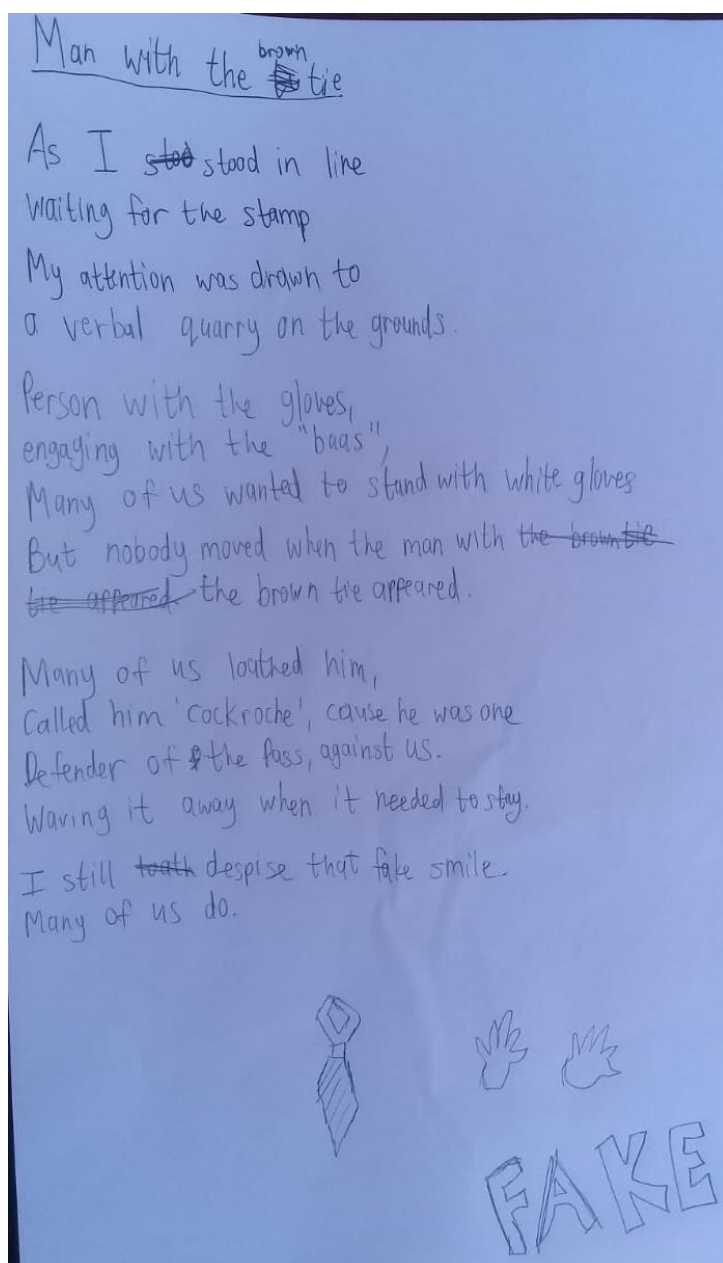 Man with the brown tie
As I stood stood in line
Waiting for the stamp
My attention was drawn to
a verbal quarry on the grounds.
Person with the gloves,
engaging with the "baas",
Many of us wanted to stand with white gloves
But nobody moved when the man with the brown tie
tie appeared. the brown tie appeared.
Many of us loathed him,
Called him 'cockroche', cause he was one
Defender of the Pass, against us.
Waving it away when it needed to stay.
I still loath despise that fake smile.
Many of us do.
FAKE